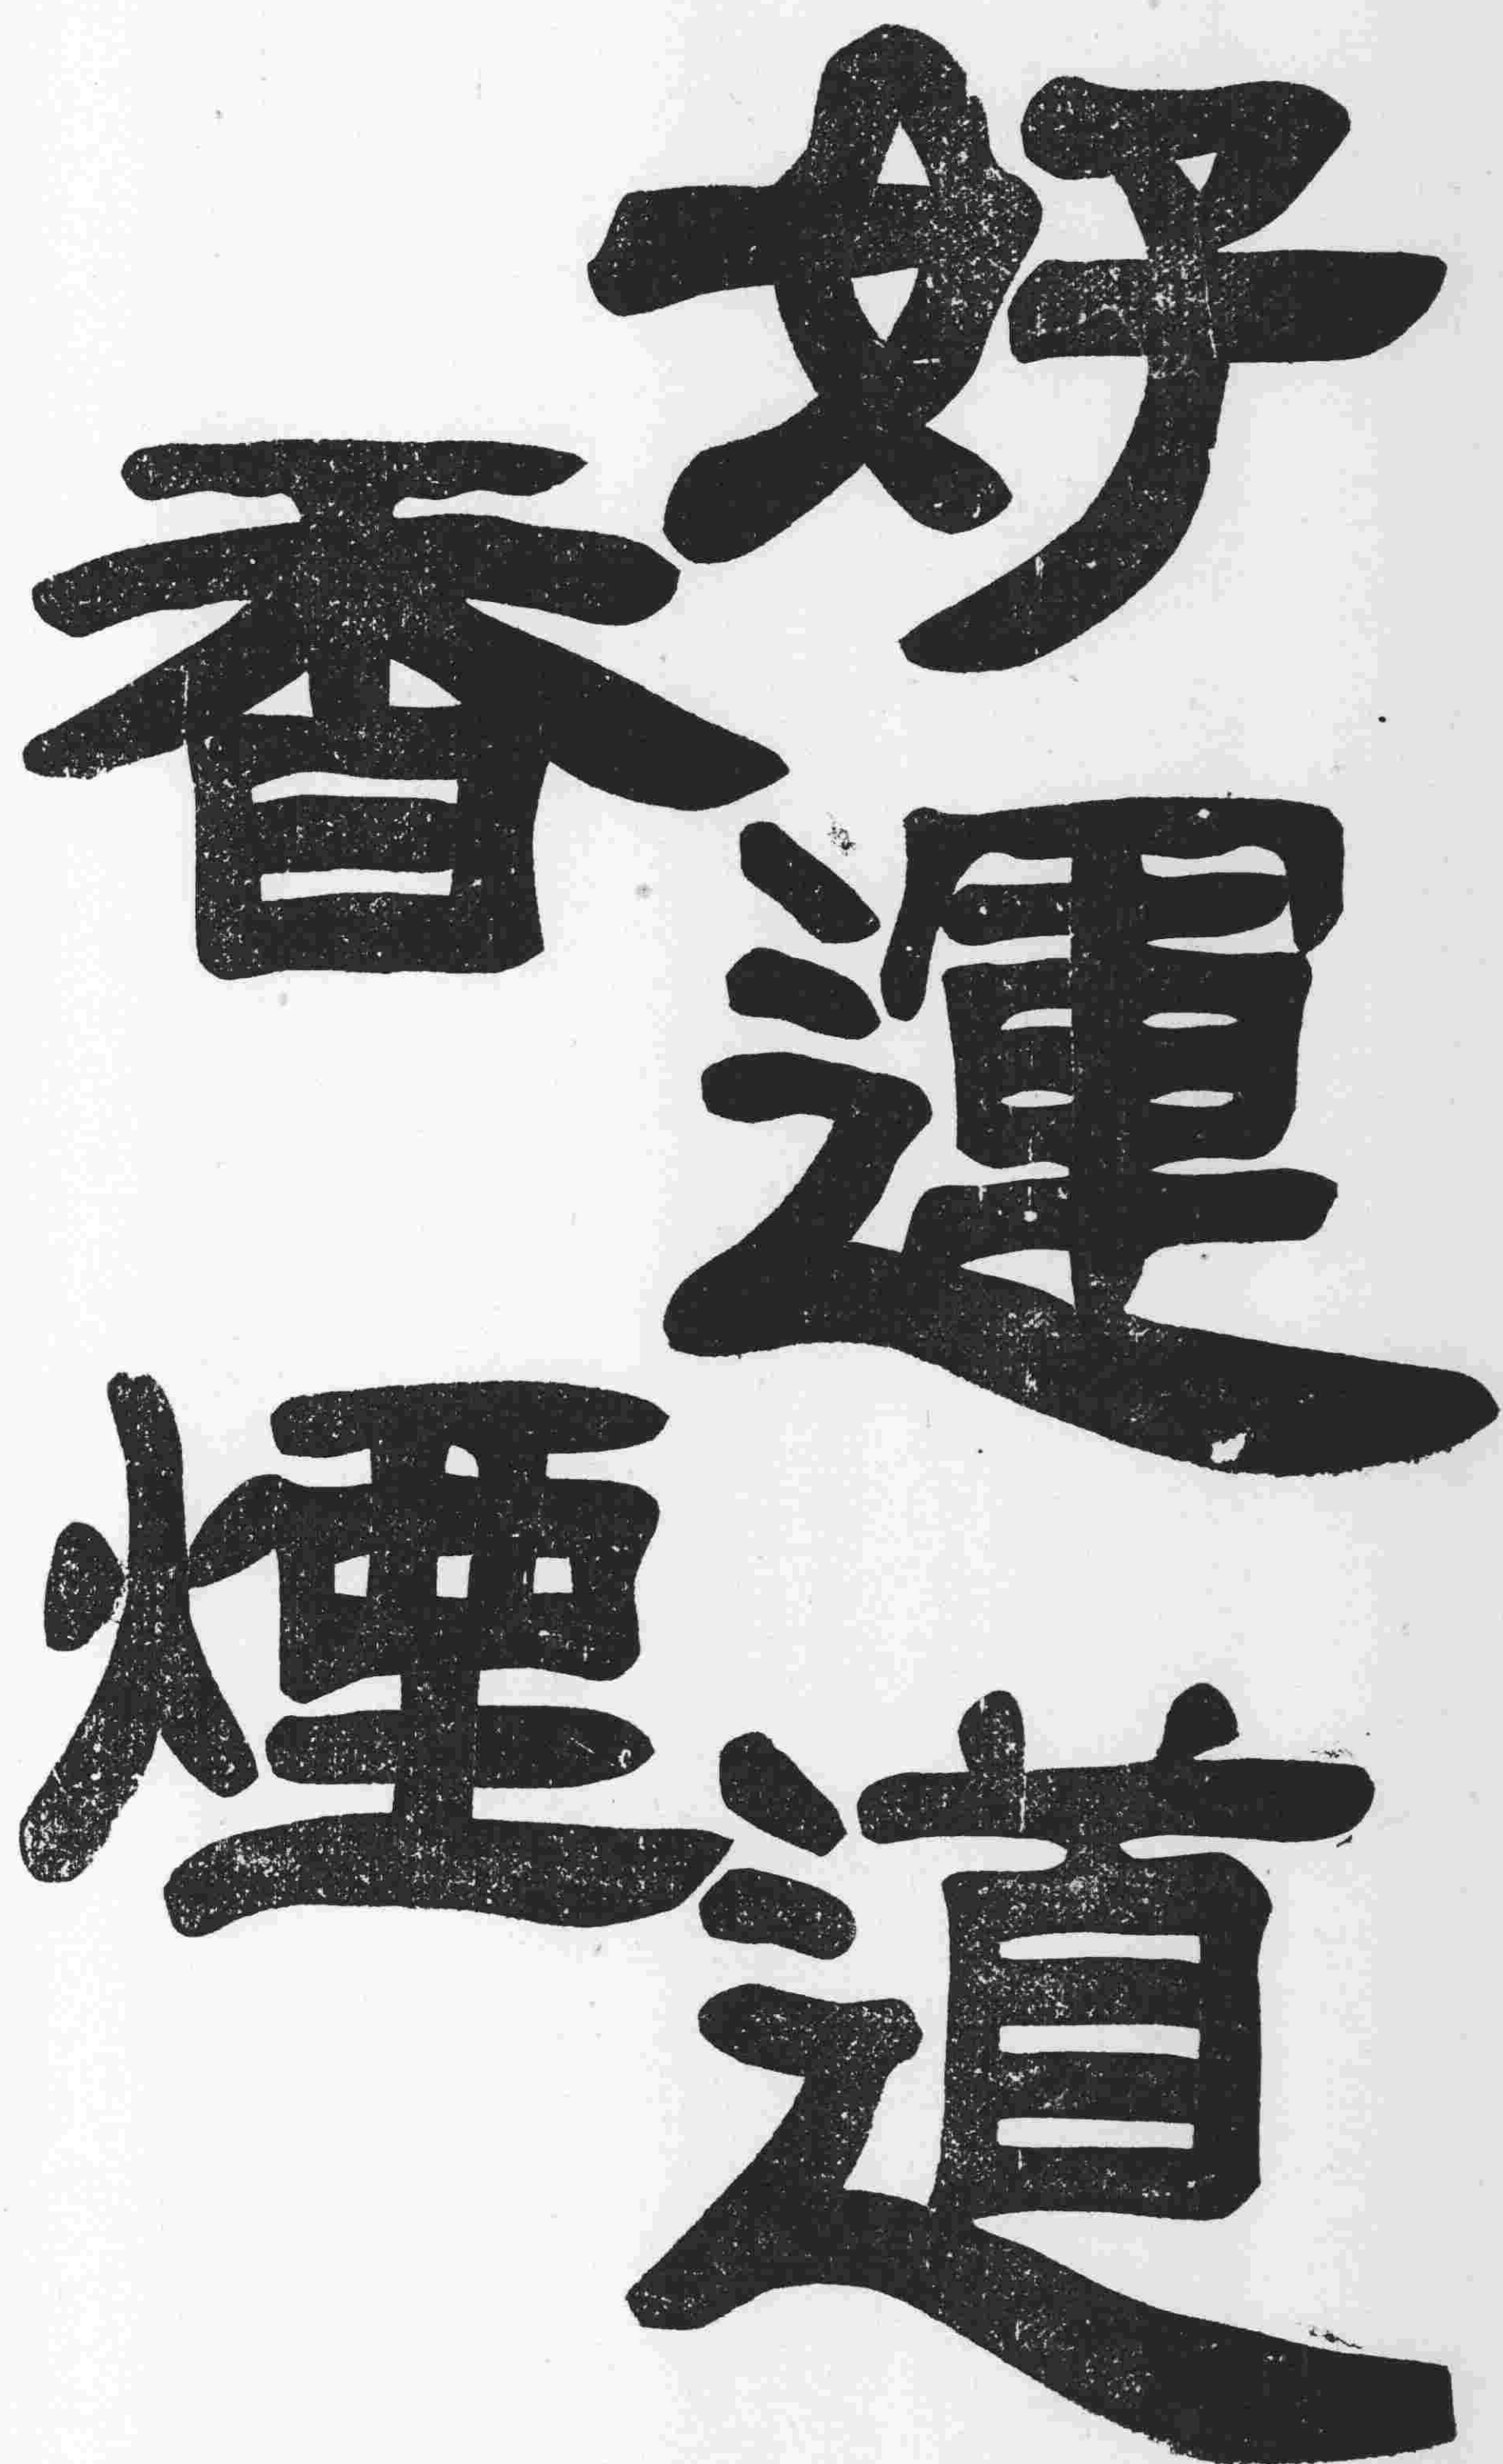 好運道
香煙